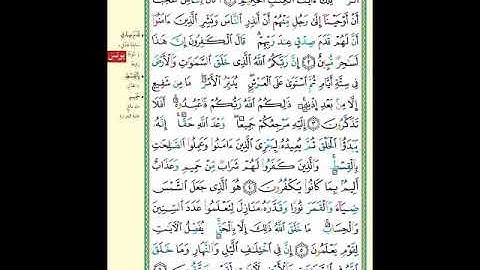 ءَايَٰتُ ٱلْكِتَٰبِ
أَنْ أَوْحَيْنَآ إِلَىٰ رَجُلٍ مِّنْهُمْ أَنْ أَنذِرِ ٱلنَّاسَ وَبَشِّرِ ٱلَّذِينَ ءَامَنُوٓا۟
أَنَّ لَهُمْ قَدَمَ صِدْقٍ عِندَ رَبِّهِمْ ۗ قَالَ ٱلْكَٰفِرُونَ إِنَّ هَٰذَا
لَسَٰحِرٌ مُّبِينٌ ٢ إِنَّ رَبَّكُمُ ٱللَّهُ ٱلَّذِى خَلَقَ ٱلسَّمَٰوَٰتِ وَٱلْأَرْضَ
فِى سِتَّةِ أَيَّامٍ ثُمَّ ٱسْتَوَىٰ عَلَى ٱلْعَرْشِ ۖ يُدَبِّرُ ٱلْأَمْرَ ۖ مَا مِن شَفِيعٍ
إِلَّا مِنۢ بَعْدِ إِذْنِهِۦ ۚ ذَٰلِكُمُ ٱللَّهُ رَبُّكُمْ فَٱعْبُدُوهُ ۚ أَفَلَا
تَذَكَّرُونَ ٣ إِلَيْهِ مَرْجِعُكُمْ جَمِيعًا ۖ وَعْدَ ٱللَّهِ حَقًّا ۚ إِنَّهُۥ
يَبْدَؤُا۟ ٱلْخَلْقَ ثُمَّ يُعِيدُهُۥ لِيَجْزِىَ ٱلَّذِينَ ءَامَنُوا۟ وَعَمِلُوا۟ ٱلصَّٰلِحَٰتِ
بِٱلْقِسْطِ ۚ وَٱلَّذِينَ كَفَرُوا۟ لَهُمْ شَرَابٌ مِّنْ حَمِيمٍ وَعَذَابٌ
أَلِيمٌۢ بِمَا كَانُوا۟ يَكْفُرُونَ ٤ هُوَ ٱلَّذِى جَعَلَ ٱلشَّمْسَ
ضِيَآءً وَٱلْقَمَرَ نُورًا وَقَدَّرَهُۥ مَنَازِلَ لِتَعْلَمُوا۟ عَدَدَ ٱلسِّنِينَ
وَٱلْحِسَابَ ۚ مَا خَلَقَ ٱللَّهُ ذَٰلِكَ إِلَّا بِٱلْحَقِّ ۚ يُفَصِّلُ ٱلْءَايَٰتِ
لِقَوْمٍ يَعْلَمُونَ ٥ إِنَّ فِى ٱخْتِلَٰفِ ٱلَّيْلِ وَٱلنَّهَارِ وَمَا خَلَقَ
يونس